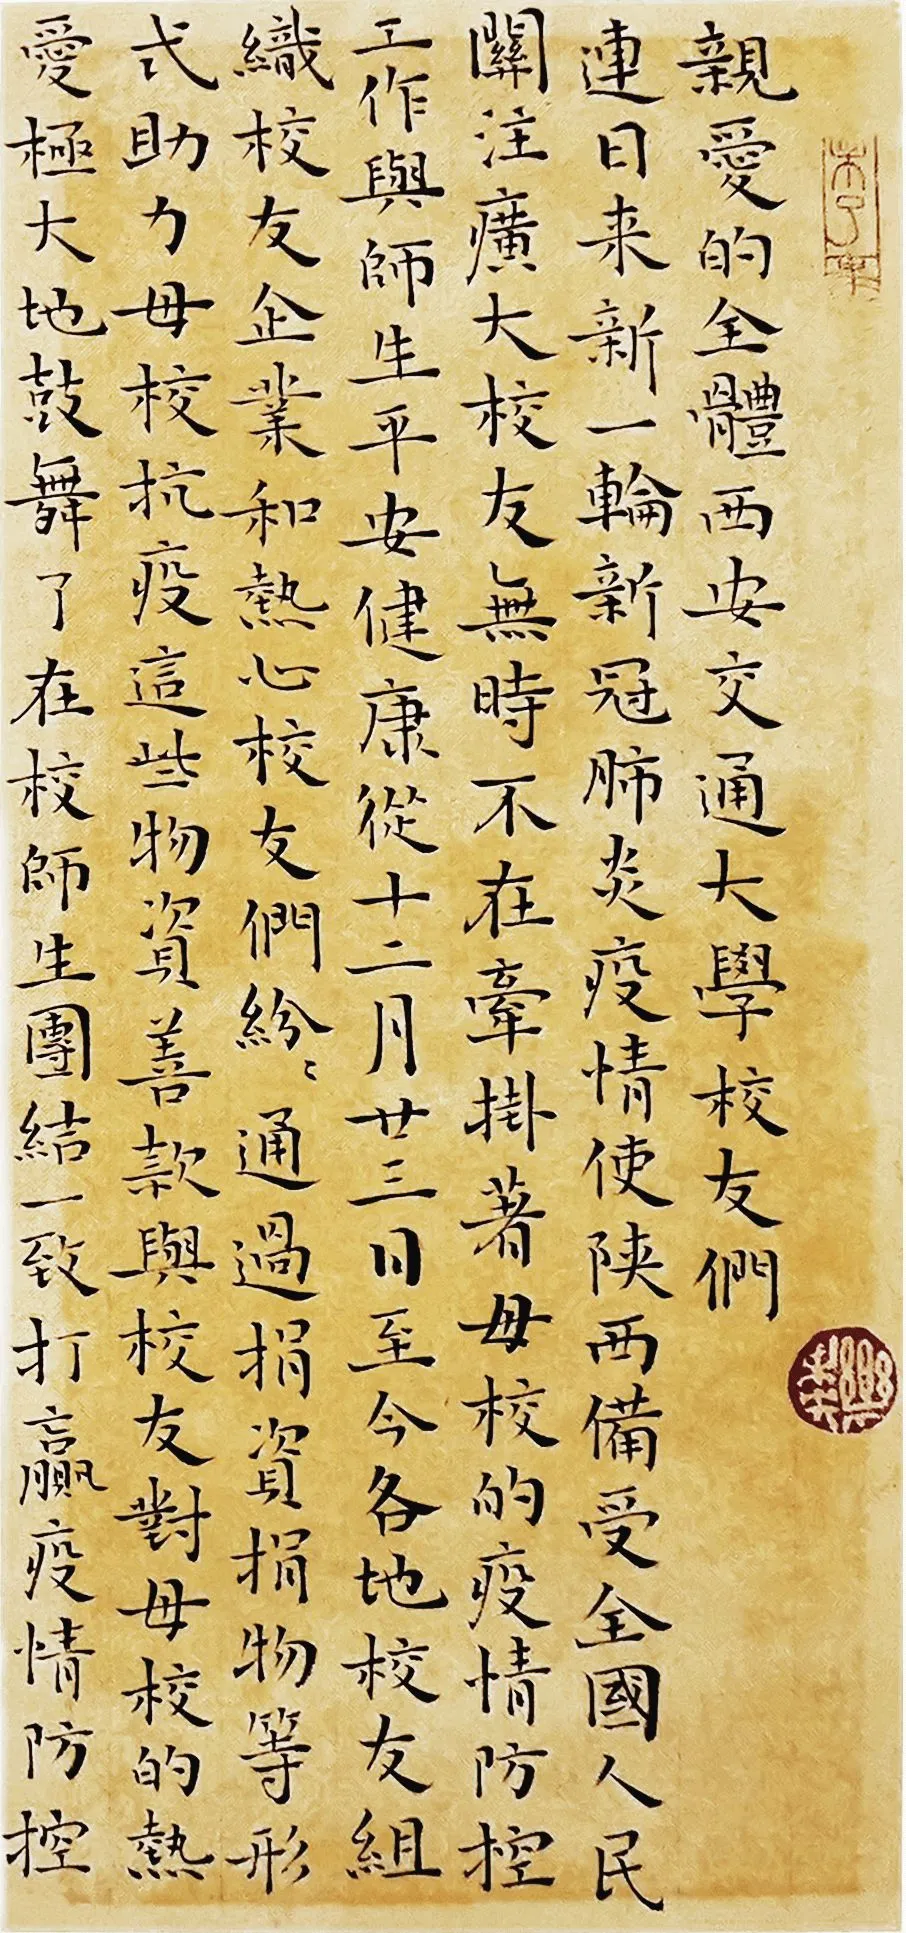 親愛的全體西安交通大學校友們
連日来新一輪新冠肺炎疫情使陕西備受全國人民
關注癀大校友無時不在牽掛著母校的疫情防控
工作與師生平安健康從十二月廿三日至今各地校友組
織校友企業和熱心校友們紛〻通過捐資捐物等形
式助力母校抗疫這些物資善款與校友對母校的熱
愛極大地鼓舞了在校師生團結一致打贏疫情防控